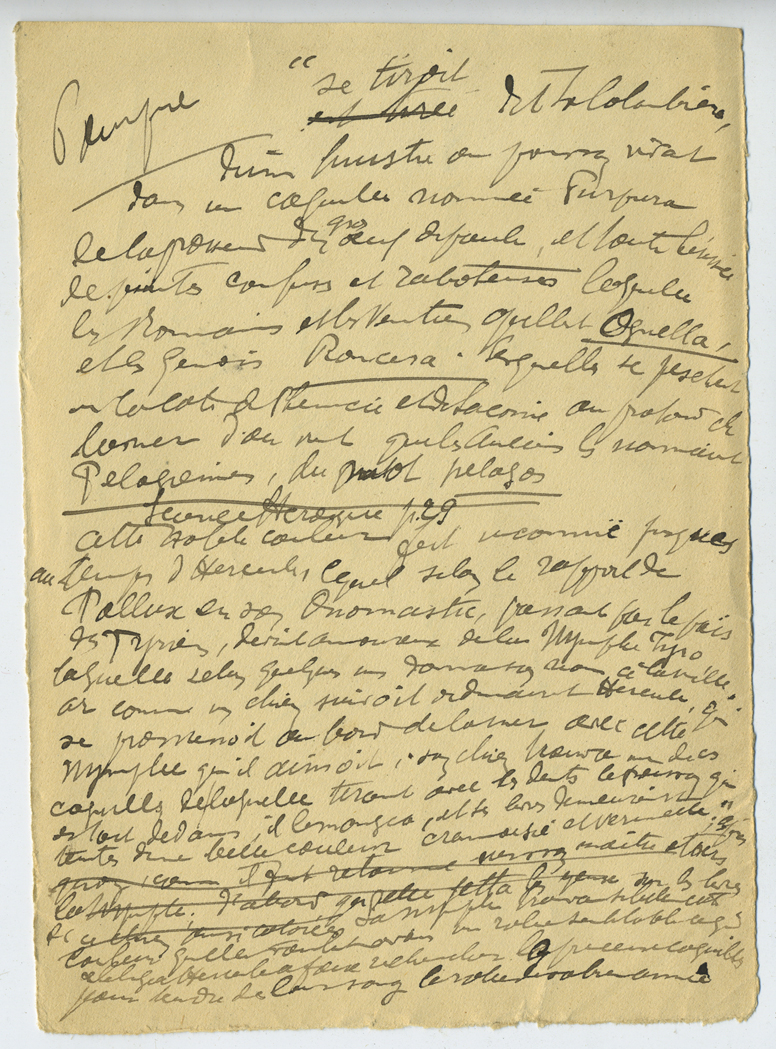 Pourpre
" se tiroit
est tirée dit La Colombière,
d'un huistre ou poisson vivant
dans un coquille nommée Purpura
de la grosseur d'un gros œuf de poule, et toute hérissée
de pointes confuses et raboteuses laquelle
les Romains et les Venitiens appellent Ognella,
et les Genois Roncera. lesquelles se peschent
en la coste de Phenicie et de Laconie au profond de
la mer d'où vient que les Anciens les nommaient
Pelagiennes, du mot pelagos
Science Heroique p. 29
cette noble couleur fut reconnue jusques
au temps d'Hercule, lequel selon le rapport de
Pollux en son Onomastic, passant par le païs
des Tyriens, devint amoureux de la Nymphe Tyro
laquelle selon quelques uns donna son nom à la ville.
ar comme un chien suivoit ordinairement Hercule, qui
se promenoit au bord de la mer avec cette
Nymphe qu'il aimoit, son chien trouva une des
coquilles de laquelle tirant avec les dents le poisson qui
estoit dedans, il le mangea, et ses lèvres demeurèrent
teintes d'une belle couleur cramoisie et vermeille
il s'en retourne vers son maitre et vers
la Nymphe. d'abord qu'elle jetta les yeux sur les lèvres
de ce chien ainsi colorées La nymphe trouva si éclatante
couleur qu'elle voulut avoir un robe semblable
obligea Hercule a faire rechercher de ces coquilles
pour teindre de leur sang la robe de